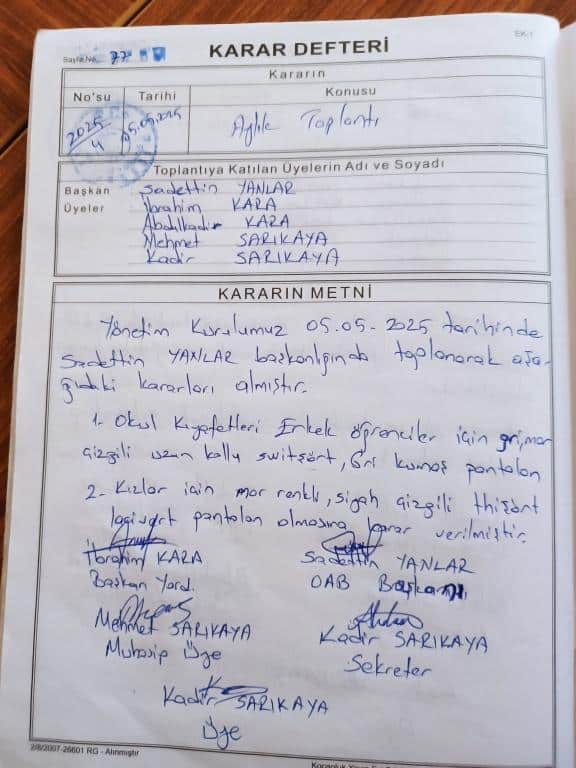 EK-1
Sayfa No. 77
KARAR DEFTERİ
Kararın
No'su Tarihi Konusu
2025/4 05.05.2025 Aylık Toplantı
Toplantıya Katılan Üyelerin Adı ve Soyadı
Başkan Sadettin YANLAR
Üyeler İbrahim KARA
Abdulkadir KARA
Mehmet SARIKAYA
Kadir SARIKAYA
KARARIN METNİ
Yönetim Kurulumuz 05.05.2025 tarihinde
Sadettin YANLAR başkanlığında toplanarak aşa-
ğıdaki kararları almıştır.
1- Okul Kıyafetleri Erkek öğrenciler için gri, mor
çizgili uzun kollu switşört, Gri kumaş pantolon
2- Kızlar için mor renkli, siyah çizgili thişört
lacivert pantolon olmasına karar verilmiştir.
İbrahim KARA Sadettin YANLAR
Başkan Yard. OAB Başkanı
Mehmet SARIKAYA Kadir SARIKAYA
Muhasip Üye Sekreter
Kadir SARIKAYA
Üye
2/8/2007-26601 RG - Alınmıştır